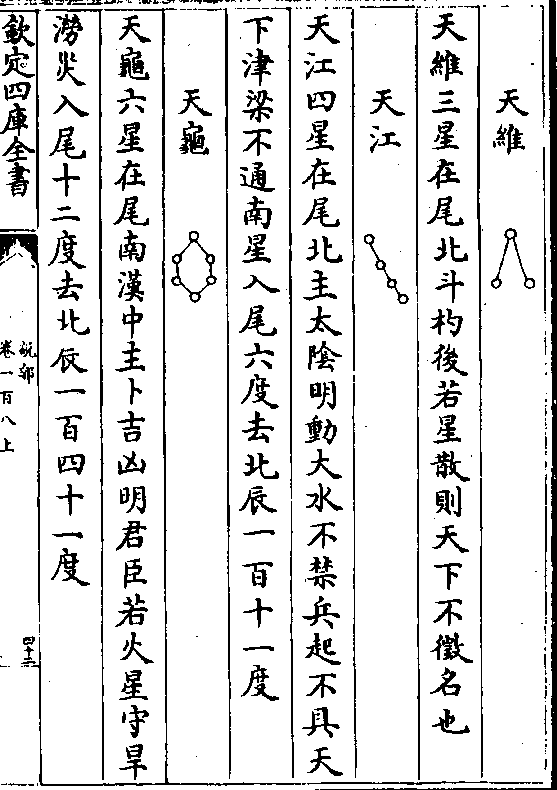 天維
天維三星在尾北斗杓後若星散則天下不徵名也
天江
天江四星在尾北主太陰明動大水不禁兵起不具天
下津梁不通南星入尾六度去北辰一百十一度
天龜
天龜六星在尾南漢中主卜吉凶明君臣若火星守旱
澇災入尾十二度去北辰一百四十一度
欽定四庫全書
說郛
卷一百八上
四十三